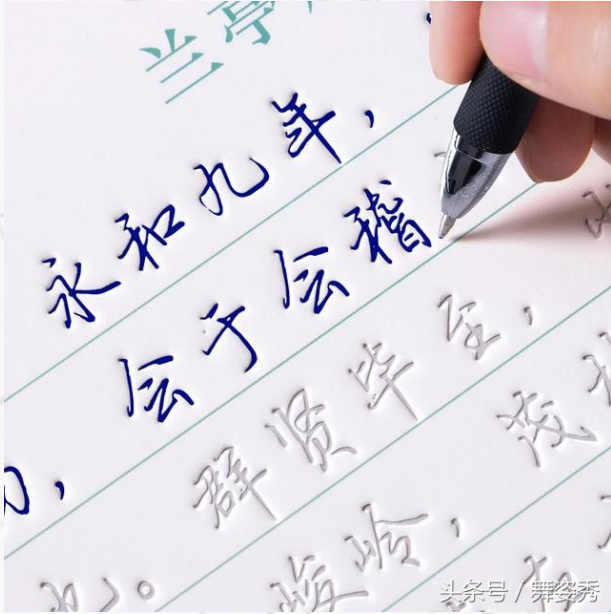 兰亭
永和九年，
会于会稽
，群贤毕至，
也。峻岭，茂
头条号 / 舞姿秀